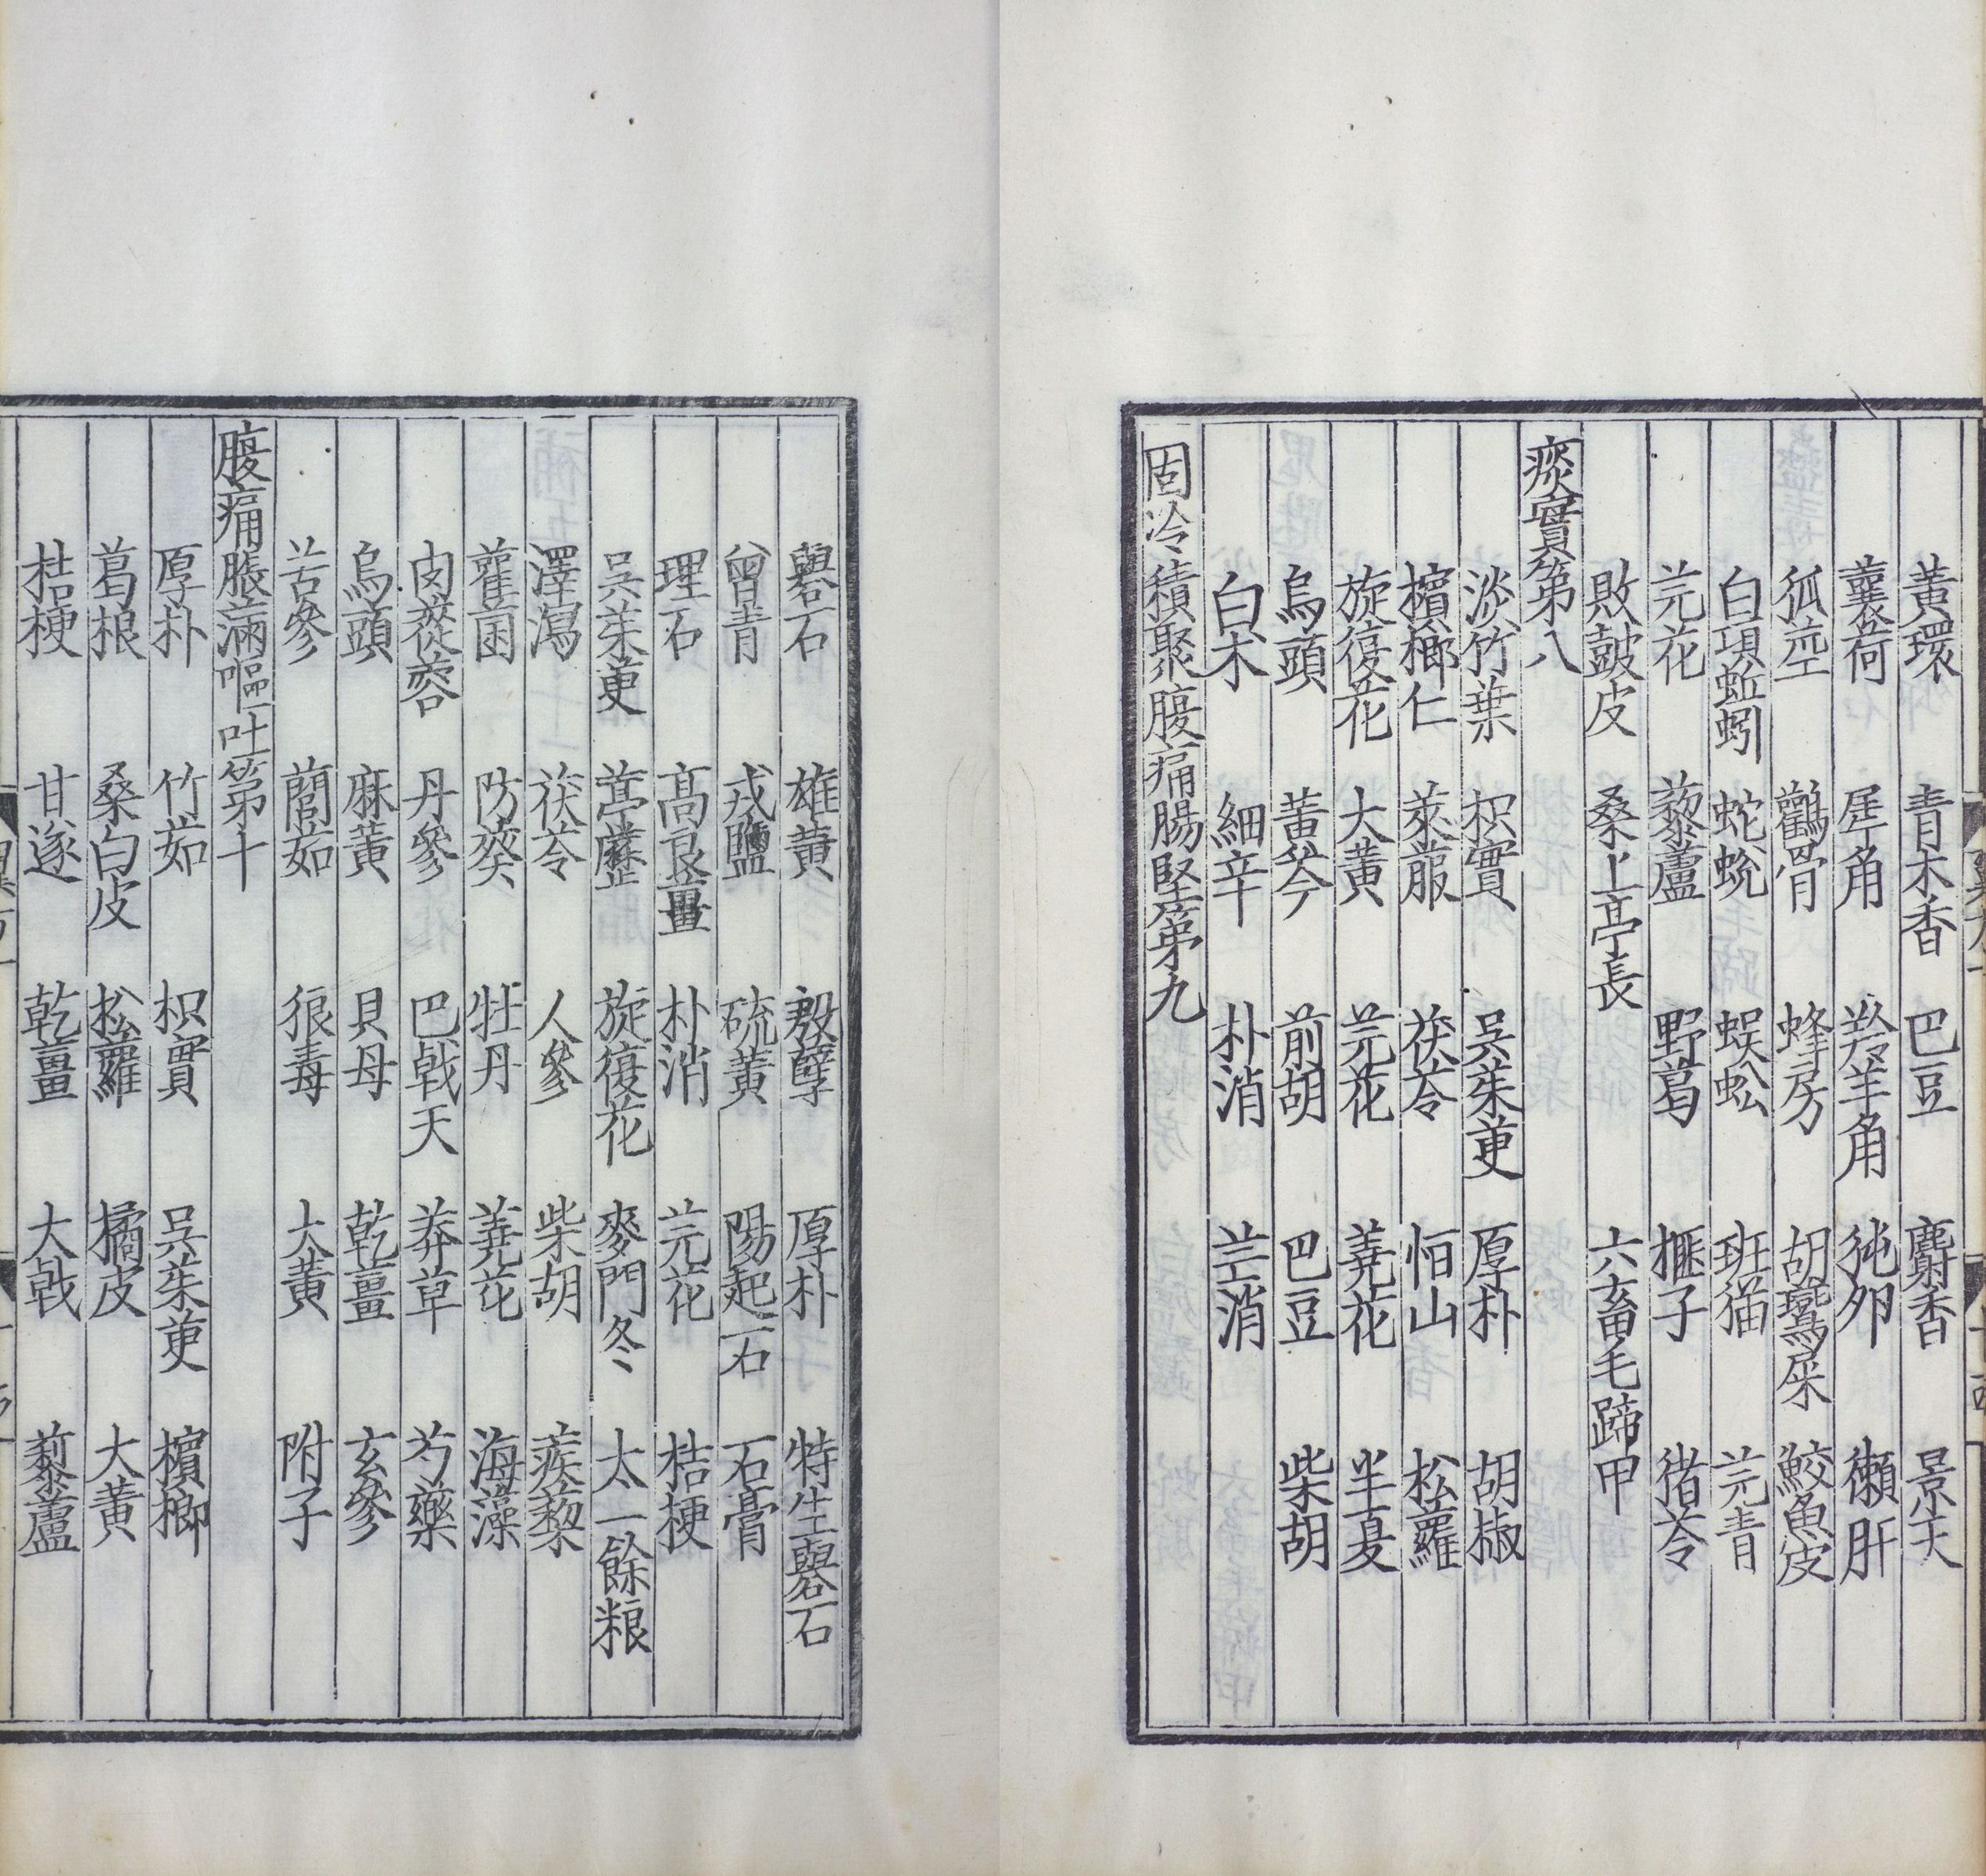 黃環 青木香 巴豆 麝香 景天
蘘荷 犀角 羚羊角 㹠卵 獺肝
狐䓖 鸛骨 蜂房 胡鷰屎 鮫魚皮
白項蚯蚓 蛇蛻 蜈蚣 班猫 芫青
芫花 藜蘆 野葛 榧子 猪苓
敗皷皮 桑上亭長 六畜毛蹄甲
痰實第八
淡竹葉 枳實 吳茱萸 厚朴 胡椒
檳榔仁 萊菔 茯苓 恒山 松蘿
旋復花 大黃 芫花 蕘花 半夏
烏頭 黃芩 前胡 巴豆 柴胡
白术 細辛 朴消 芒消
固冷積聚腹痛腸堅第九
礜石 雄黃 殷孽 厚朴 特生礜石
曾青 戎鹽 硫黃 陽起石 石膏
理石 高良薑 朴消 芫花 桔梗
吳茱萸 葶藶 旋復花 麥門冬 太一餘粮
澤瀉 茯苓 人參 柴胡 蒺藜
雚菌 防葵 牡丹 蕘花 海藻
肉蓯蓉 丹參 巴戟天 莽草 芍藥
烏頭 麻黃 貝母 乾薑 玄參
苦參 䕡茹 狼毒 大黃 附子
腹痛脹滿嘔吐第十
厚朴 竹茹 枳實 吳茱萸 檳榔
葛根 桑白皮 松蘿 橘皮 大黃
桔梗 甘遂 乾薑 大戟 藜蘆